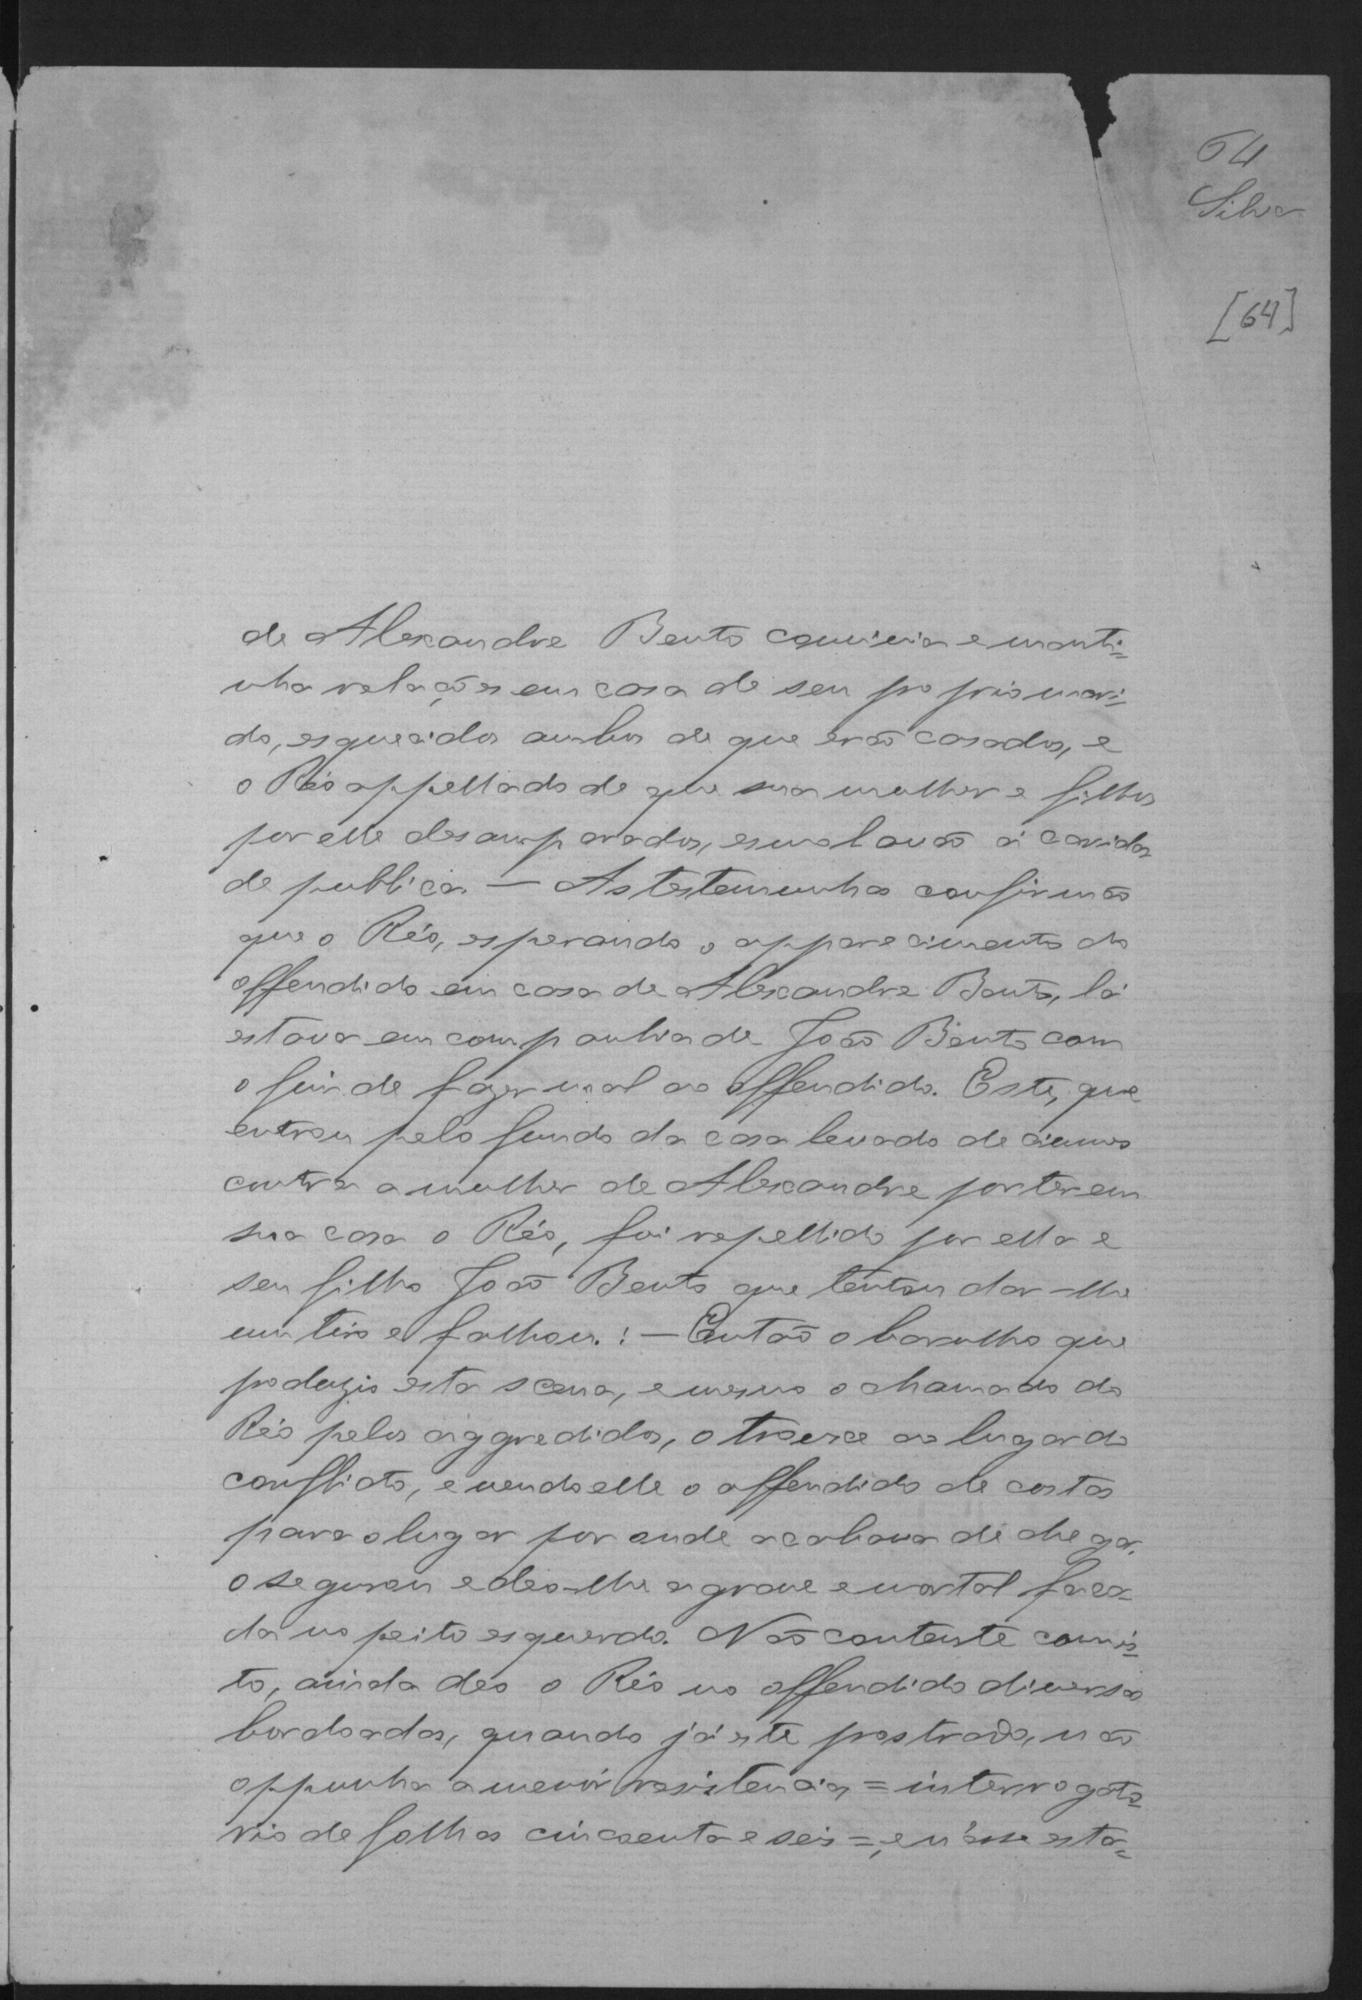 64
Silva
[64]
de Alexandre Bento convivia e manti=
nha relações em casa de seu proprio mari=
do, esquecidos ambos de que erão casados, e
o Réo appellado de que sua mulher e filhos
por elle desamparados, esmolavão á carida
de publica — As testemunhas confirmão
que o Réo, esperando o apparecimento do
offendido em casa de Alexandre Bento, lá
estava em companhia de João Bento com
o fim de fazer mal ao offendido. Este, que
entrou pelo fundo da casa levado de ciumes
contra a mulher de Alexandre por ter em
sua casa o Réo, foi repellido por ella e
seu filho João Bento que tentou dar-lhe
um tiro e falhou.! — Então o barulho que
produzio esta scena, e mesmo o chamado do
Réo pelos aggredidos, o trouxe ao lugar do
conflicto, e vendo elle o offendido de costas
para o lugar por onde acabava de chegar,
o segurou e deo-lhe a grave e mortal faca-
da no peito esquerdo. Não contente com is=
to, ainda deo o Réo no offendido diversas
bordoadas, quando já este prostrado, não
oppunha a menór resistencia, = interrogato=
rio de folhas cincoenta e seis =, e n'esse esta=